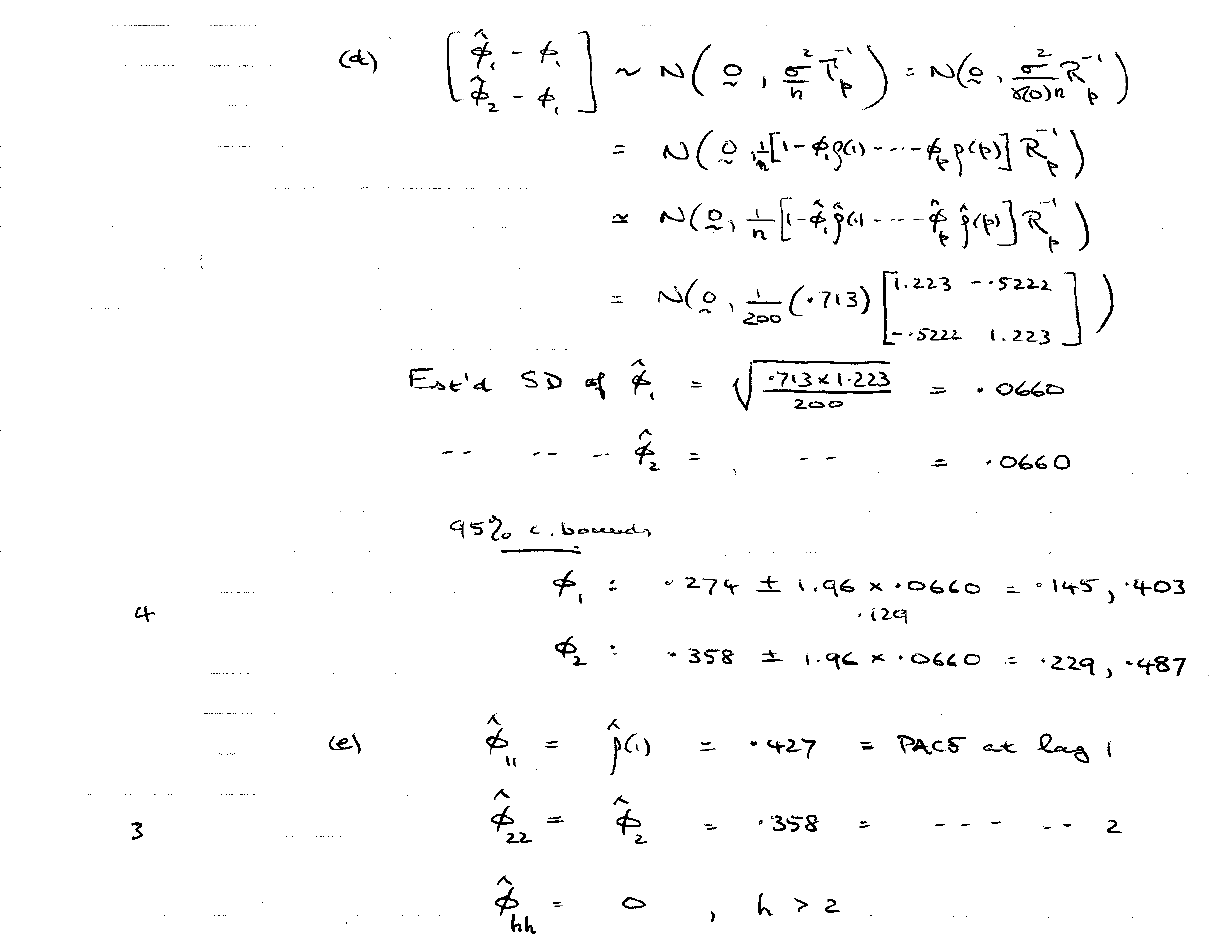 (d) [ φ̂₁ - φ₁ ; φ̂₂ - φ₁ ] ~ N( 0̰ , σ²/n Γₚ⁻¹ ) = N( 0̰ , σ²/(γ(0)n) Rₚ⁻¹ )
= N( 0̰ , 1/n [1 - φ₁ρ(1) - ··· - φₚρ(p)] Rₚ⁻¹ )
≃ N( 0̰ , 1/n [1 - φ̂₁ρ̂(1 - ··· - φ̂ₚ ρ̂(p)] Rₚ⁻¹ )
= N( 0̰ , 1/200 (·713) [ 1.223 -·5222 ; -·5222 1.223 ] )
Est'd SD of φ̂₁ = √(·713×1·223 / 200) = ·0660
-- -- -- φ̂₂ = -- = ·0660
95% c. bounds
φ₁ : ·274 ± 1.96 × ·0660 = ·145, ·403
·129
4
φ₂ : ·358 ± 1.96 × ·0660 = ·229, ·487
(e) φ̂₁₁ = ρ̂(1) = ·427 = PACF at lag 1
3 φ̂₂₂ = φ̂₂ = ·358 = - - - -- 2
φ̂ₕₕ = 0 , h > 2